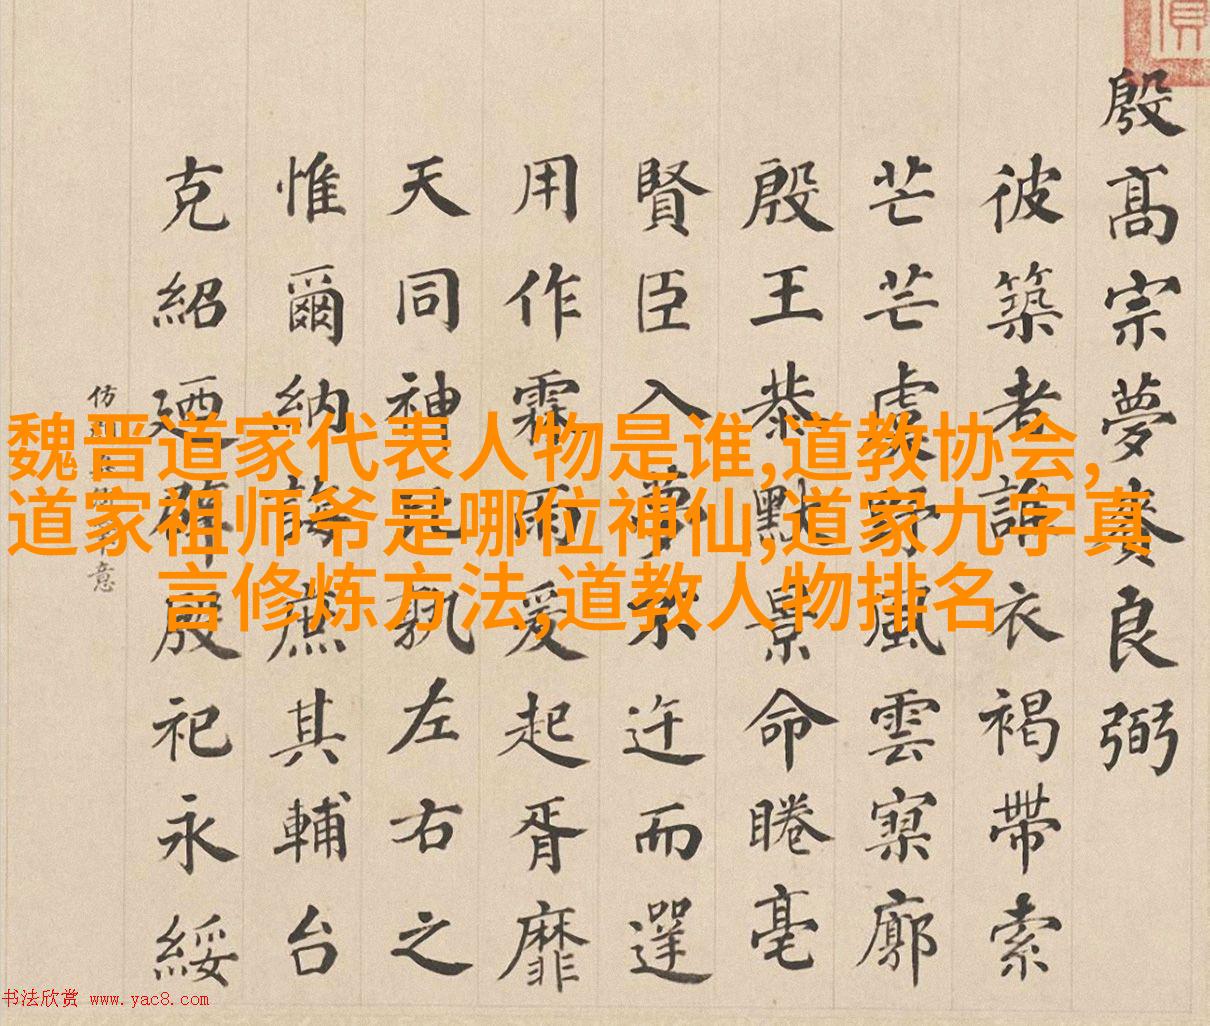 魏晋道家代表人物是谁,道教协会,
道家祖师爷是哪位神仙,道家九字真
言修炼方法,道教人物排名
殷髙宗夢賚良弼
彼築者誰衣褐帶索
芒芒虞風雲寥廓
殷王恭默景命睠亳
賢臣入夢迕而遻
用作霖雨爰起胥靡
天同神孰左右之
惟爾納誨庶其輔台
克紹迺辟殷祀永綏
仿意
书法欣赏 www.yac8.com